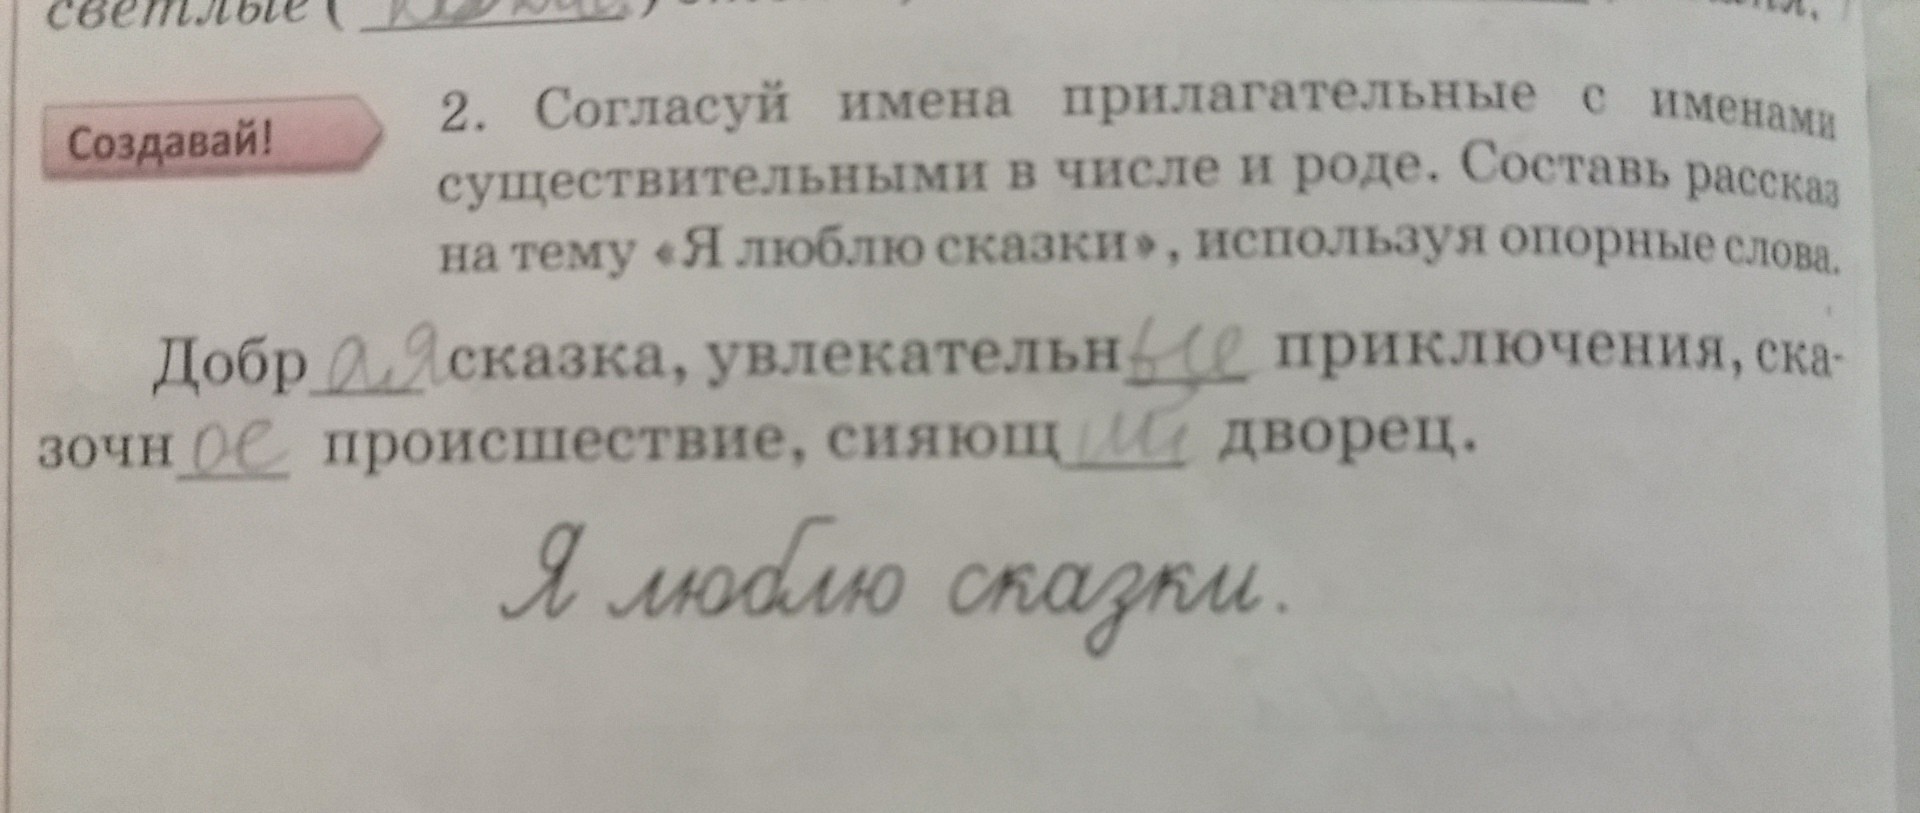 светлые (
Создавай!
2. Согласуй имена прилагательные с именами
существительными в числе и роде. Составь рассказ
на тему «Я люблю сказки», используя опорные слова.
Добр ая сказка, увлекательн ые приключения, ска-
зочн ое происшествие, сияющ ий дворец.
Я люблю сказки.